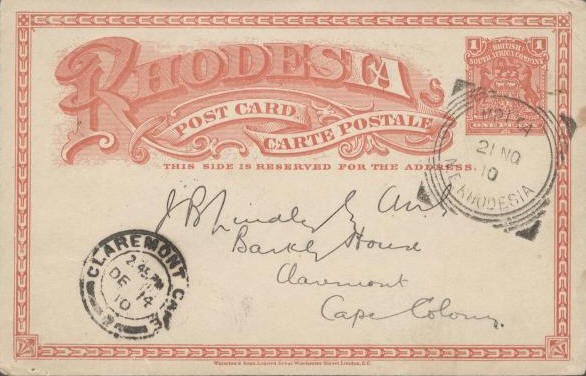 RHODESIA
1 BRITISH 1
SOUTH AFRICA COMPANY
POST CARD
CARTE POSTALE
ONE PENNY
THIS SIDE IS RESERVED FOR THE ADDRESS.
21 NO
10
N.E. RHODESIA
J B Lindley
Barkly House
Claremont
Cape Colony.
CLAREMONT CAPE
2.45 PM
DE 14
10
Waterlow & Sons Limited, Great Winchester Street, London, E.C.